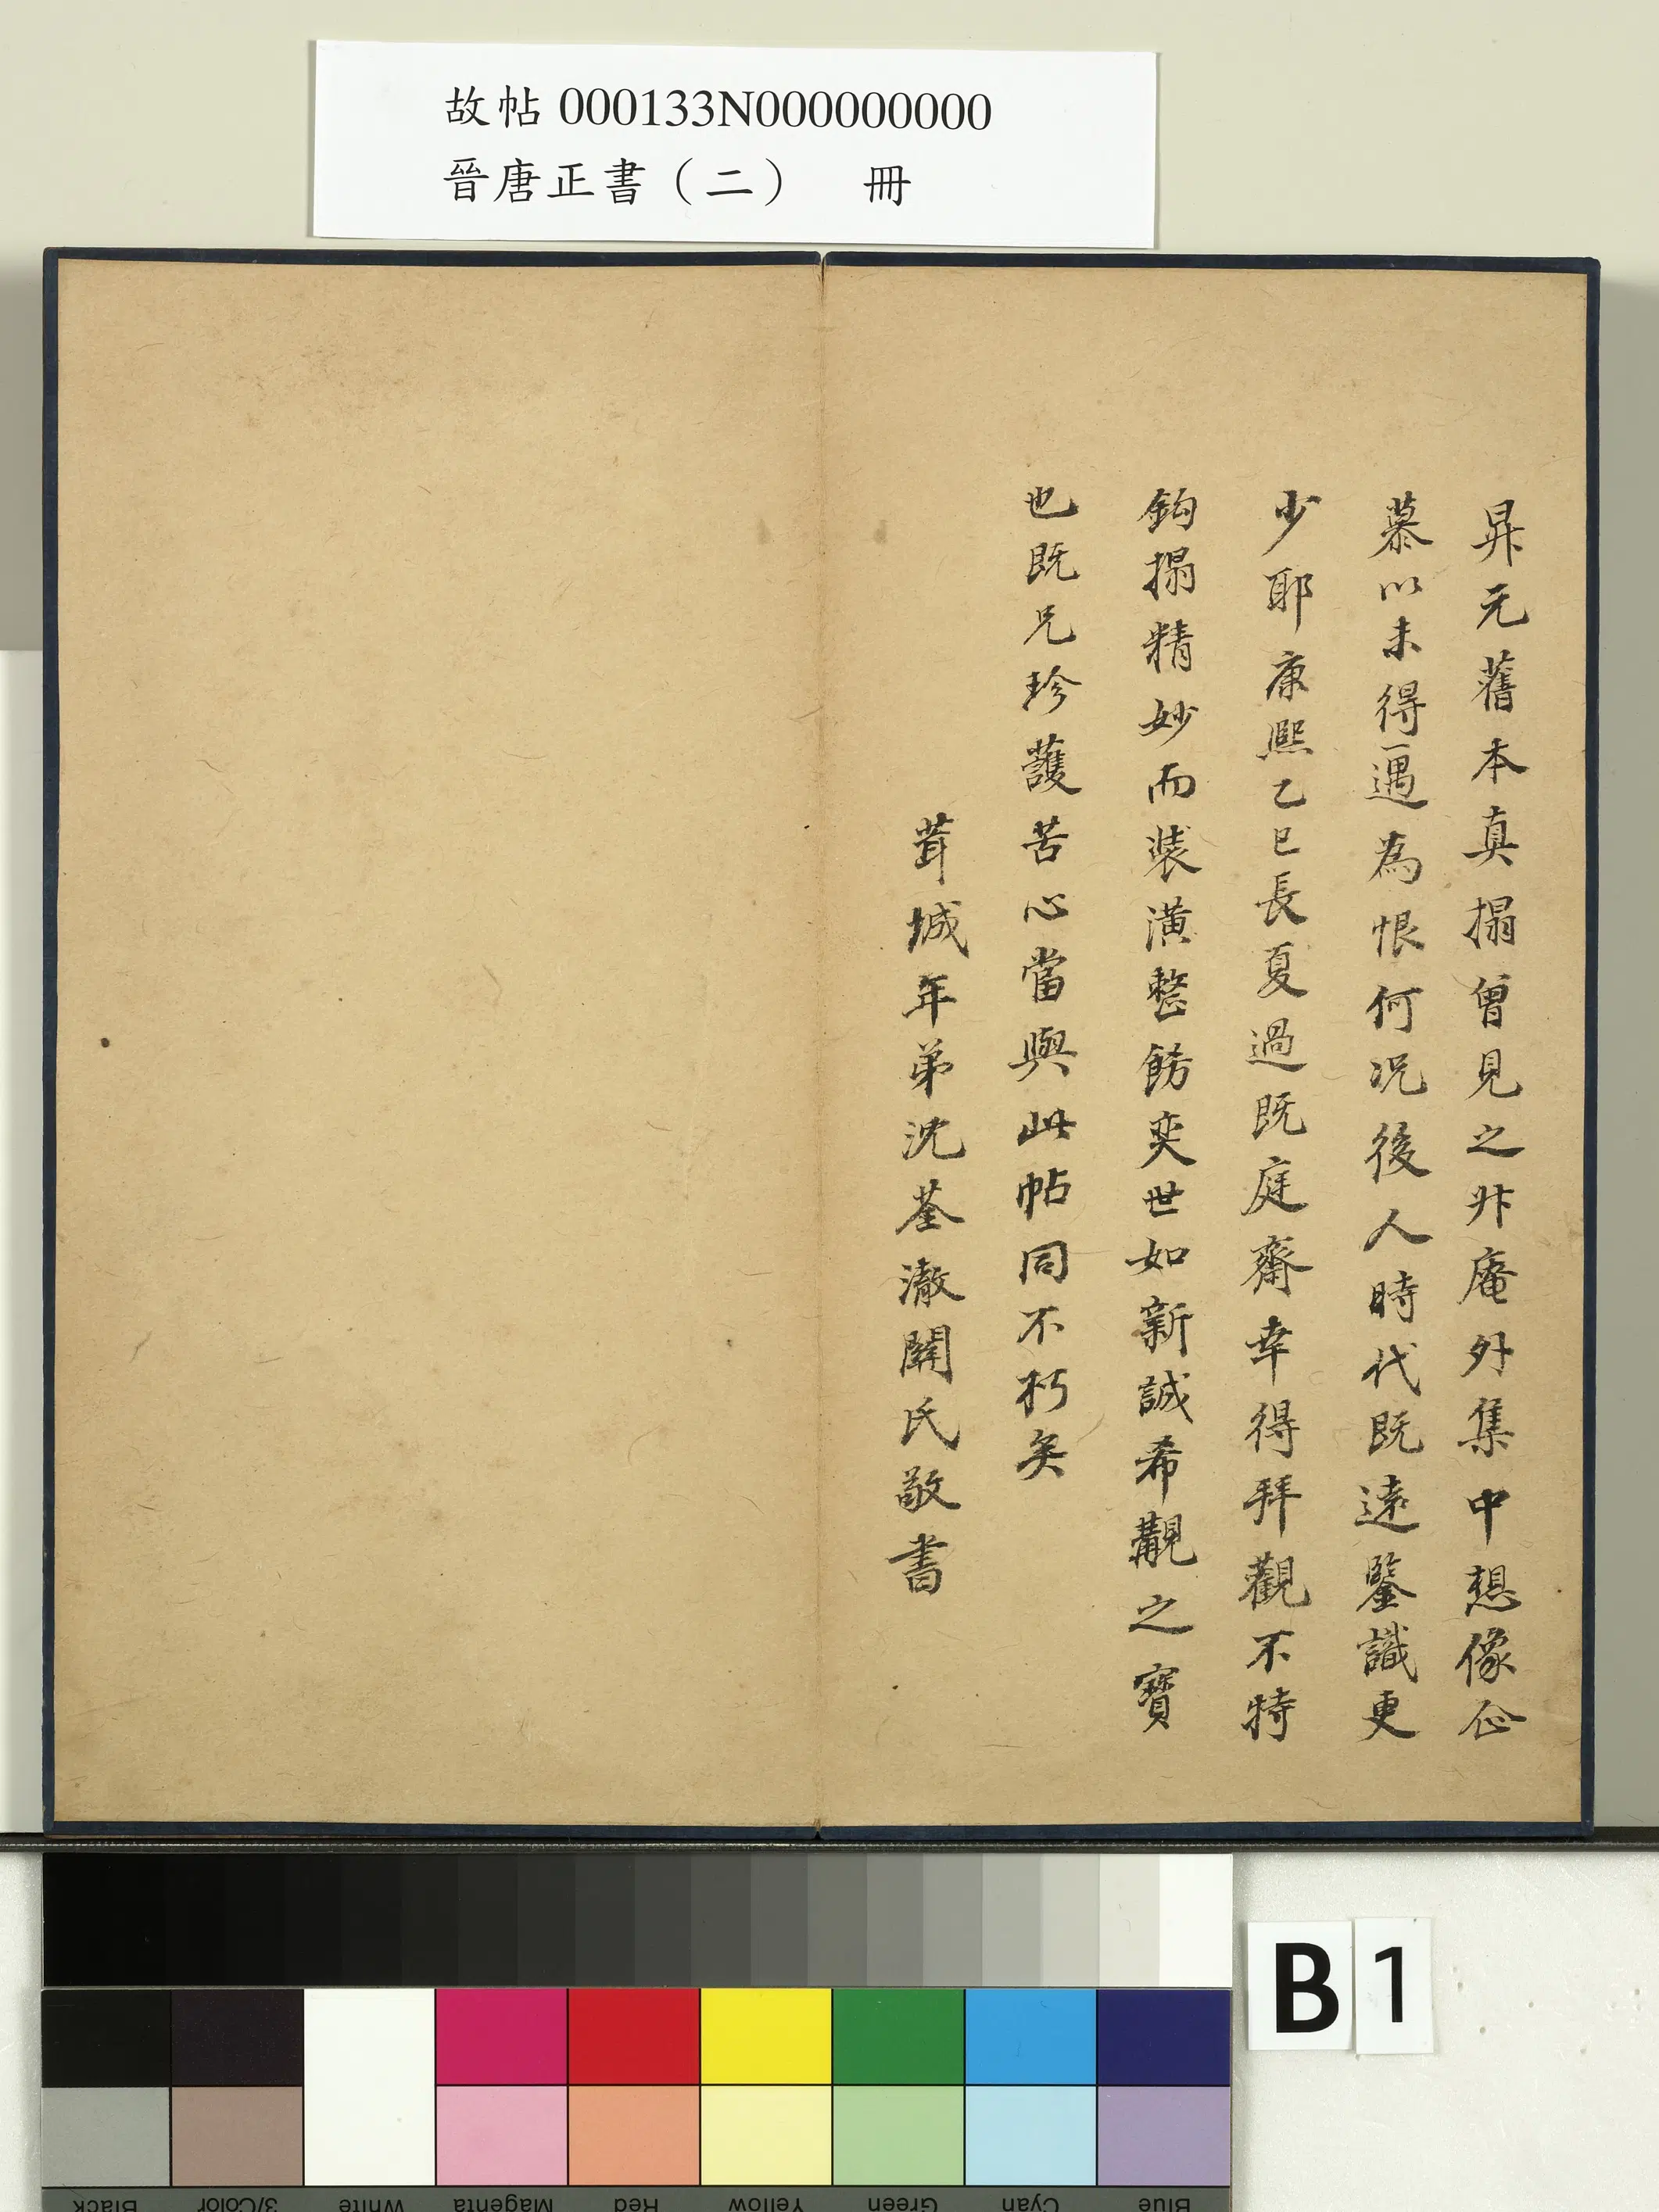 故帖 000133N000000000
晉唐正書（二） 冊
昇元舊本真搨曾見之升庵外集中想像企
慕以未得一遇為恨何況後人時代既遠鑒識更
少耶康熙乙巳長夏過既庭齋幸得拜觀不特
鈎搨精妙而裝潢整飭奕世如新誠希覯之寶
也既兄珍護苦心當與此帖同不朽矣
茸城年弟沈荃澈閒氏敬書
B 1
Black 3/Color White Magenta Red Yellow Green Cyan Blue